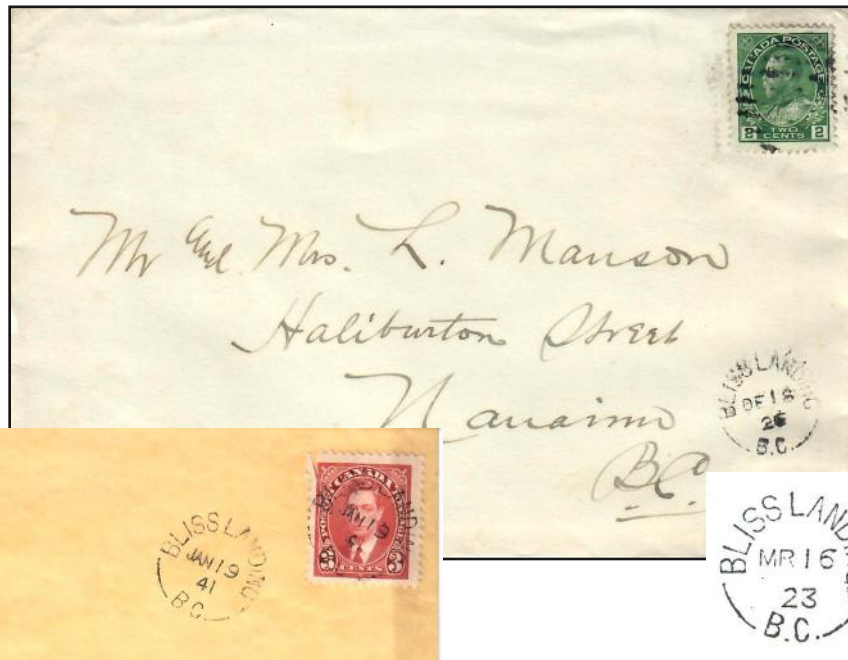 CANADA POSTAGE
2 TWO CENTS 2
Mr and Mrs. L. Manson
Haliburton Street
Nanaimo
B.C.
BLISS LANDING
DE 18
26
B.C.
BLISS LANDING
JAN 19
41
B.C.
CANADA
POSTES POSTAGE
JAN 19
3 CENTS 3
BLISS LANDING
MR 16
23
B.C.